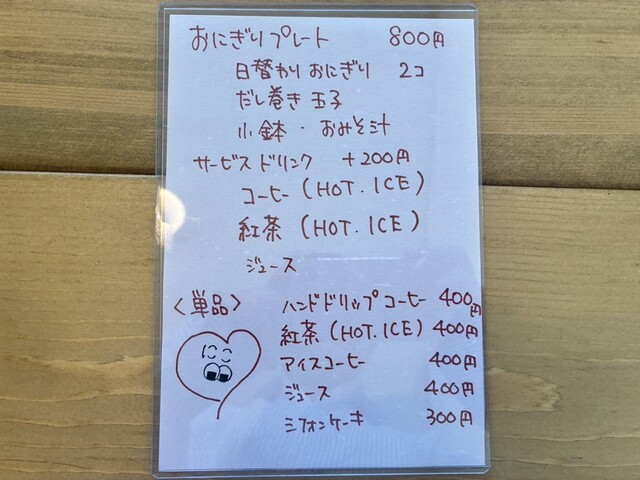 おにぎりプレート 800円
日替わり おにぎり 2コ
だし巻き 玉子
小鉢・おみそ汁
サービスドリンク +200円
コーヒー (HOT. ICE)
紅茶 (HOT. ICE)
ジュース
<単品> ハンドドリップコーヒー 400円
紅茶 (HOT. ICE) 400円
アイスコーヒー 400円
ジュース 400円
シフォンケーキ 300円
にこ